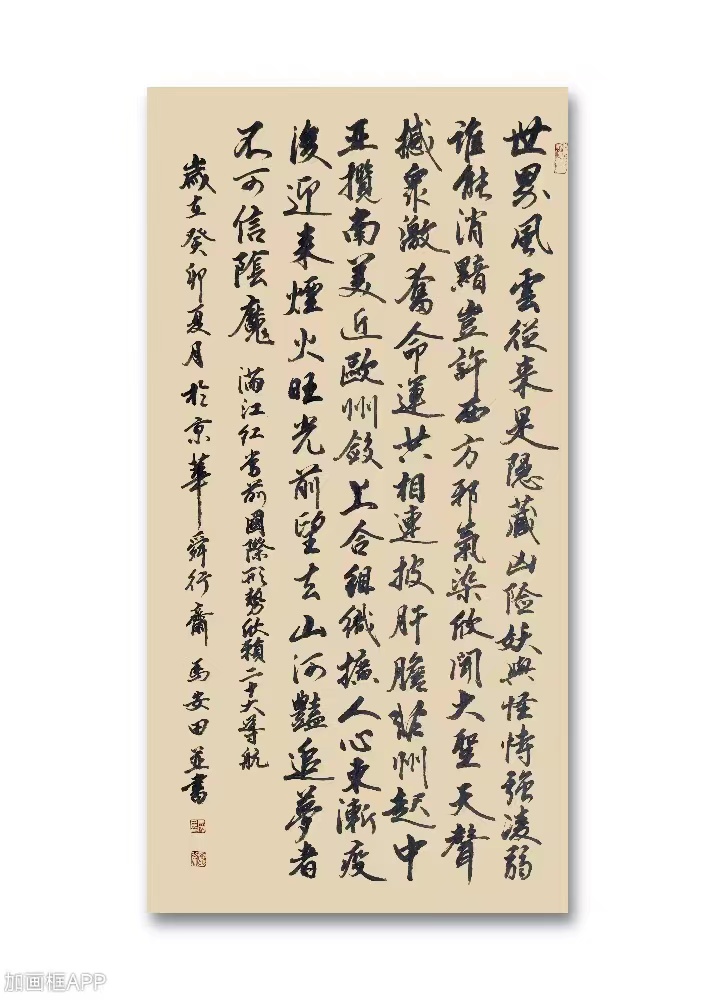 世界風雲從来是隱藏凶险妖與怪恃強凌弱
誰能消黯豈許西方邪氣染欣聞大聖天聲
撼衆激奮命運共相連披肝膽非州起中
亚攬南美近歐州斂上合組織擴人心東漸疫
後迎来煙火旺光前望去山河豔追夢者
不可信陰魔
满江红 當前國際形勢欣頼二十大導航
歲在癸卯夏月於京華舜行齋馬安田並書
加画框APP